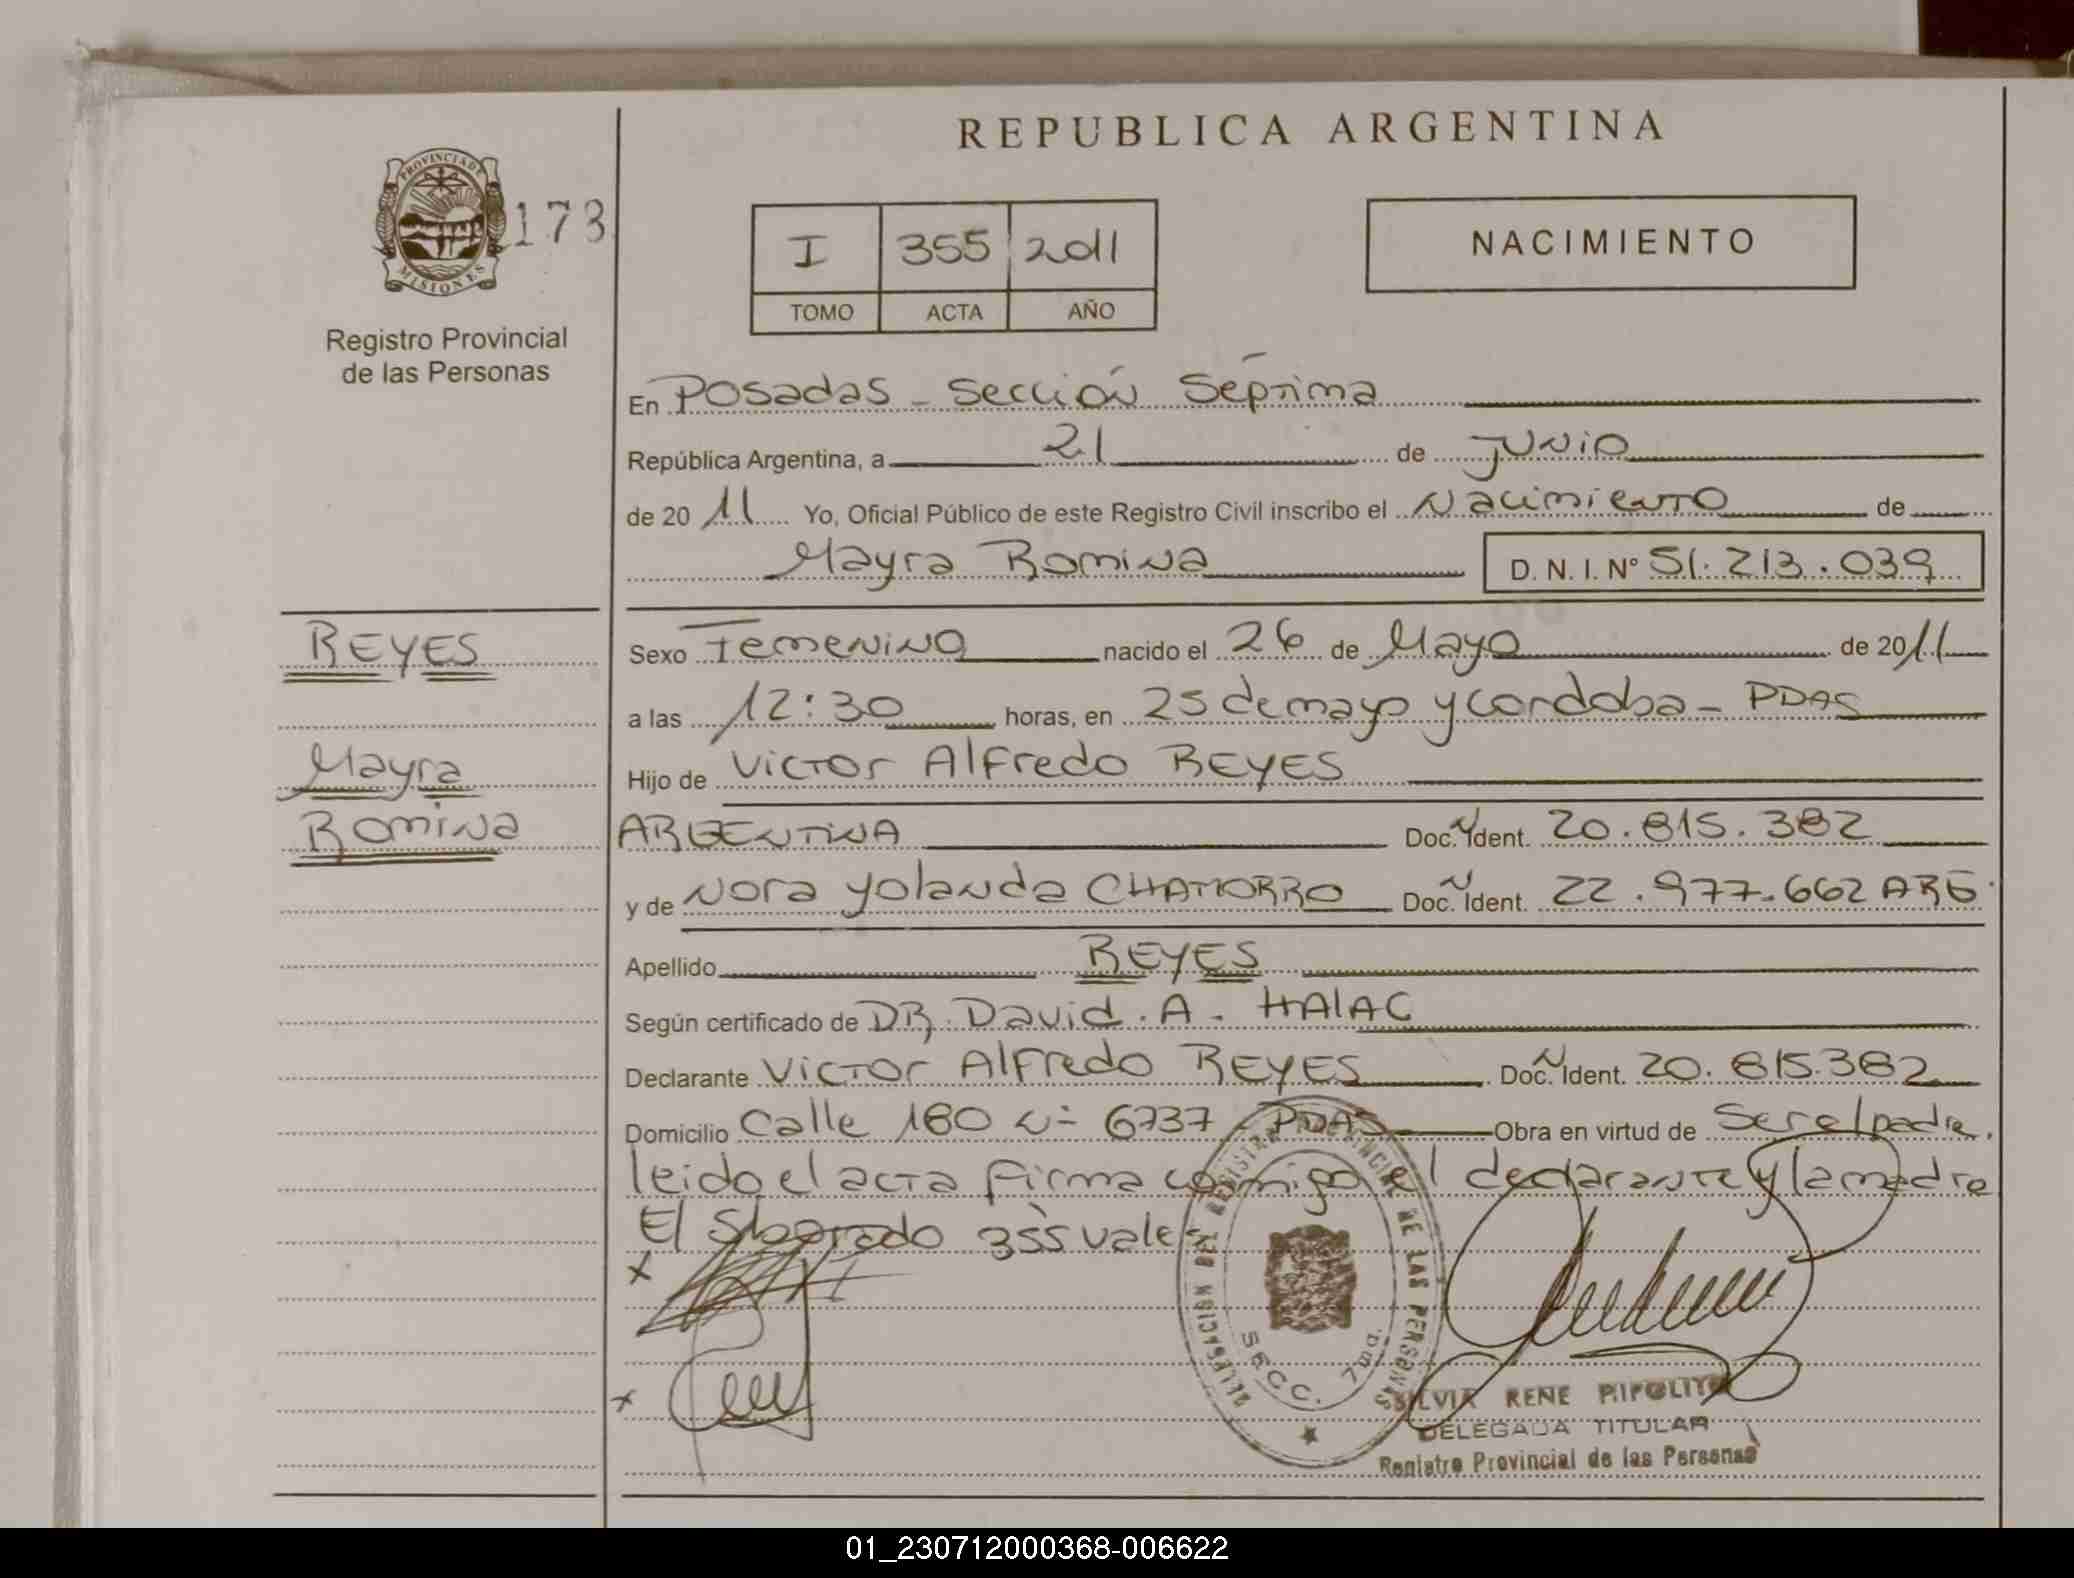 REPUBLICA ARGENTINA
PROVINCIA DE
MISIONES
173
I 355 2011
TOMO ACTA AÑO
NACIMIENTO
Registro Provincial
de las Personas
En Posadas - Sección Séptima
República Argentina, a 21 de junio
de 2011 Yo, Oficial Público de este Registro Civil inscribo el Nacimiento de
Mayra Romina D. N. I. N° 51.213.039
REYES
Mayra
Romina
Sexo Femenino nacido el 26 de Mayo de 2011
a las 12:30 horas, en 25 de mayo y cordoba - PDAS
Hijo de Victor Alfredo REYES
ARGENTINA Doc. Ident. 20.815.382
y de Nora Yolanda CHAMORRO Doc. Ident. 22.977.662 ARG.
Apellido REYES
Según certificado de DR. David. A. HAlAC
Declarante Victor Alfredo REYES Doc. Ident. 20.815.382
Domicilio Calle 180 N° 6737 - PDAS Obra en virtud de Ser el padre.
leido el acta firma conmigo el declarante y la madre
El Sborrado 355 vale
x
x
DELEGACION DEL REGISTRO PROVINCIAL DE LAS PERSONAS
SECC. 7ma.
SILVIA RENE PIPOLITO
DELEGADA TITULAR
Registro Provincial de las Personas
01_230712000368-006622